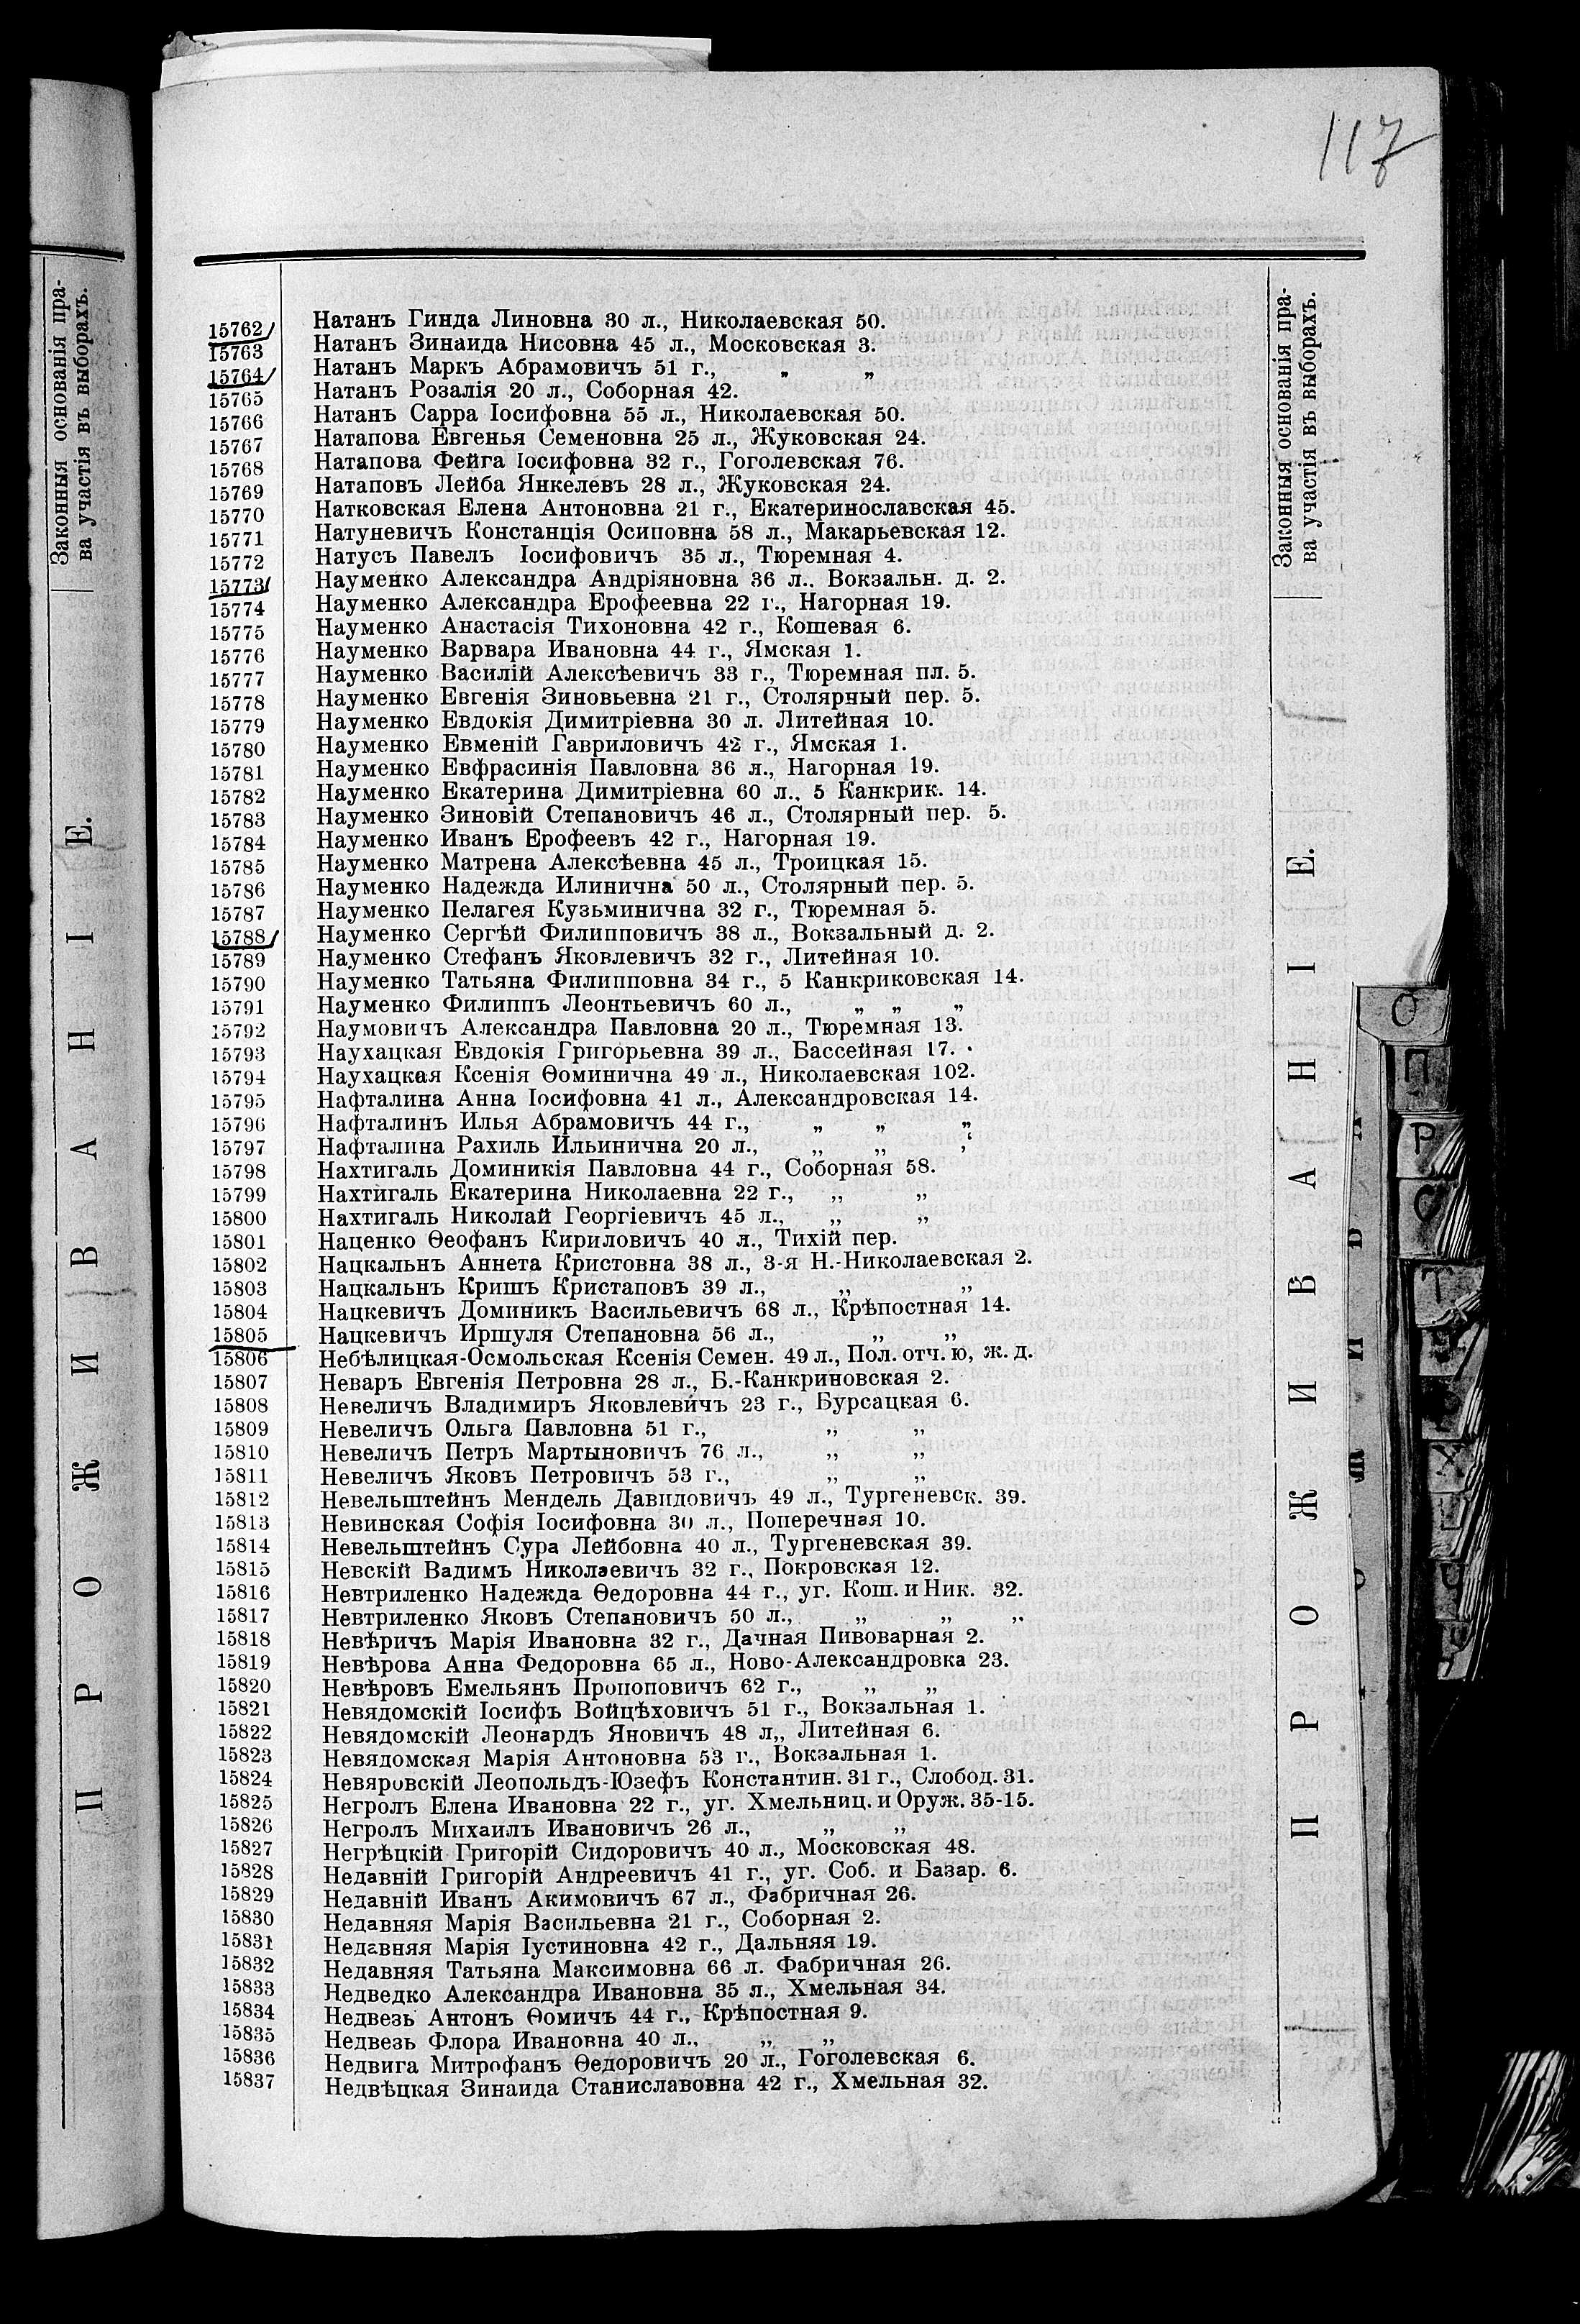 117
Законныя основанія пра-
ва участія въ выборахъ.
ПРОЖИВАНІЕ.
15762 Натанъ Гинда Линовна 30 л., Николаевская 50.
15763 Натанъ Зинаида Нисовна 45 л., Московская 3.
15764 Натанъ Маркъ Абрамовичъ 51 г., „ „
15765 Натанъ Розалія 20 л., Соборная 42.
15766 Натанъ Сарра Іосифовна 55 л., Николаевская 50.
15767 Натапова Евгенья Семеновна 25 л., Жуковская 24.
15768 Натапова Фейга Іосифовна 32 г., Гоголевская 76.
15769 Натаповъ Лейба Янкелевъ 28 л., Жуковская 24.
15770 Натковская Елена Антоновна 21 г., Екатеринославская 45.
15771 Натуневичъ Констанція Осиповна 58 л., Макарьевская 12.
15772 Натусъ Павелъ Іосифовичъ 35 л., Тюремная 4.
15773 Науменко Александра Андріяновна 36 л.. Вокзальн. д. 2.
15774 Науменко Александра Ерофеевна 22 г., Нагорная 19.
15775 Науменко Анастасія Тихоновна 42 г., Кошевая 6.
15776 Науменко Варвара Ивановна 44 г., Ямская 1.
15777 Науменко Василій Алексѣевичъ 33 г., Тюремная пл. 5.
15778 Науменко Евгенія Зиновьевна 21 г., Столярный пер. 5.
15779 Науменко Евдокія Димитріевна 30 л. Литейная 10.
15780 Науменко Евменій Гавриловичъ 42 г., Ямская 1.
15781 Науменко Евфрасинія Павловна 36 л., Нагорная 19.
15782 Науменко Екатерина Димитріевна 60 л., 5 Канкрик. 14.
15783 Науменко Зиновій Степановичъ 46 л., Столярный пер. 5.
15784 Науменко Иванъ Ерофеевъ 42 г., Нагорная 19.
15785 Науменко Матрена Алексѣевна 45 л., Троицкая 15.
15786 Науменко Надежда Илинична 50 л., Столярный пер. 5.
15787 Науменко Пелагея Кузьминична 32 г., Тюремная 5.
15788 Науменко Сергѣй Филипповичъ 38 л., Вокзальный д. 2.
15789 Науменко Стефанъ Яковлевичъ 32 г., Литейная 10.
15790 Науменко Татьяна Филипповна 34 г., 5 Канкриковская 14.
15791 Науменко Филиппъ Леонтьевичъ 60 л., „ „ „
15792 Наумовичъ Александра Павловна 20 л., Тюремная 13.
15793 Наухацкая Евдокія Григорьевна 39 л., Бассейная 17.
15794 Наухацкая Ксенія Ѳоминична 49 л., Николаевская 102.
15795 Нафталина Анна Іосифовна 41 л., Александровская 14.
15796 Нафталинъ Илья Абрамовичъ 44 г., „ „ „
15797 Нафталина Рахиль Ильинична 20 л., „ „ „
15798 Нахтигаль Доминикія Павловна 44 г., Соборная 58.
15799 Нахтигаль Екатерина Николаевна 22 г., „ „
15800 Нахтигаль Николай Георгіевичъ 45 л., „ „
15801 Наценко Ѳеофанъ Кириловичъ 40 л., Тихій пер.
15802 Нацкальнъ Аннета Кристовна 38 л., 3-я Н.-Николаевская 2.
15803 Нацкальнъ Кришъ Кристаповъ 39 л., „ „
15804 Нацкевичъ Доминикъ Васильевичъ 68 л., Крѣпостная 14.
15805 Нацкевичъ Иршуля Степановна 56 л., „ „
15806 Небѣлицкая-Осмольская Ксенія Семен. 49 л., Пол. отч. ю, ж. д.
15807 Неваръ Евгенія Петровна 28 л., Б.-Канкриновская 2.
15808 Невеличъ Владимиръ Яковлевичъ 23 г., Бурсацкая 6.
15809 Невеличъ Ольга Павловна 51 г., „ „
15810 Невеличъ Петръ Мартыновичъ 76 л., „ „
15811 Невеличъ Яковъ Петровичъ 53 г., „ „
15812 Невельштейнъ Мендель Давидовичъ 49 л., Тургеневск. 39.
15813 Невинская Софія Іосифовна 30 л., Поперечная 10.
15814 Невельштейнъ Сура Лейбовна 40 л., Тургеневская 39.
15815 Невскій Вадимъ Николаевичъ 32 г., Покровская 12.
15816 Невтриленко Надежда Ѳедоровна 44 г., уг. Кош. и Ник. 32.
15817 Невтриленко Яковъ Степановичъ 50 л., „ „ „
15818 Невѣричъ Марія Ивановна 32 г., Дачная Пивоварная 2.
15819 Невѣрова Анна Федоровна 65 л., Ново-Александровка 23.
15820 Невѣровъ Емельянъ Пропоповичъ 62 г., „ „
15821 Невядомскій Іосифъ Войцѣховичъ 51 г., Вокзальная 1.
15822 Невядомскій Леонардъ Яновичъ 48 л„ Литейная 6.
15823 Невядомская Марія Антоновна 53 г., Вокзальная 1.
15824 Невяровскій Леопольдъ-Юзефъ Константин. 31 г., Слобод. 31.
15825 Негролъ Елена Ивановна 22 г., уг. Хмельниц. и Оруж. 35-15.
15826 Негролъ Михаилъ Ивановичъ 26 л., „ „
15827 Негрѣцкій Григорій Сидоровичъ 40 л., Московская 48.
15828 Недавній Григорій Андреевичъ 41 г., уг. Соб. и Базар. 6.
15829 Недавній Иванъ Акимовичъ 67 л., Фабричная 26.
15830 Недавняя Марія Васильевна 21 г., Соборная 2.
15831 Недавняя Марія Іустиновна 42 г., Дальняя 19.
15832 Недавняя Татьяна Максимовна 66 л. Фабричная 26.
15833 Недведко Александра Ивановна 35 л., Хмельная 34.
15834 Недвезь Антонъ Ѳомичъ 44 г., Крѣпостная 9.
15835 Недвезь Флора Ивановна 40 л., „ „
15836 Недвига Митрофанъ Ѳедоровичъ 20 л., Гоголевская 6.
15837 Недвѣцкая Зинаида Станиславовна 42 г., Хмельная 32.
Законныя основанія пра-
ва участія въ выборахъ.
ПРОЖИВАНІЕ.
О
П
Р
С
Т
Х